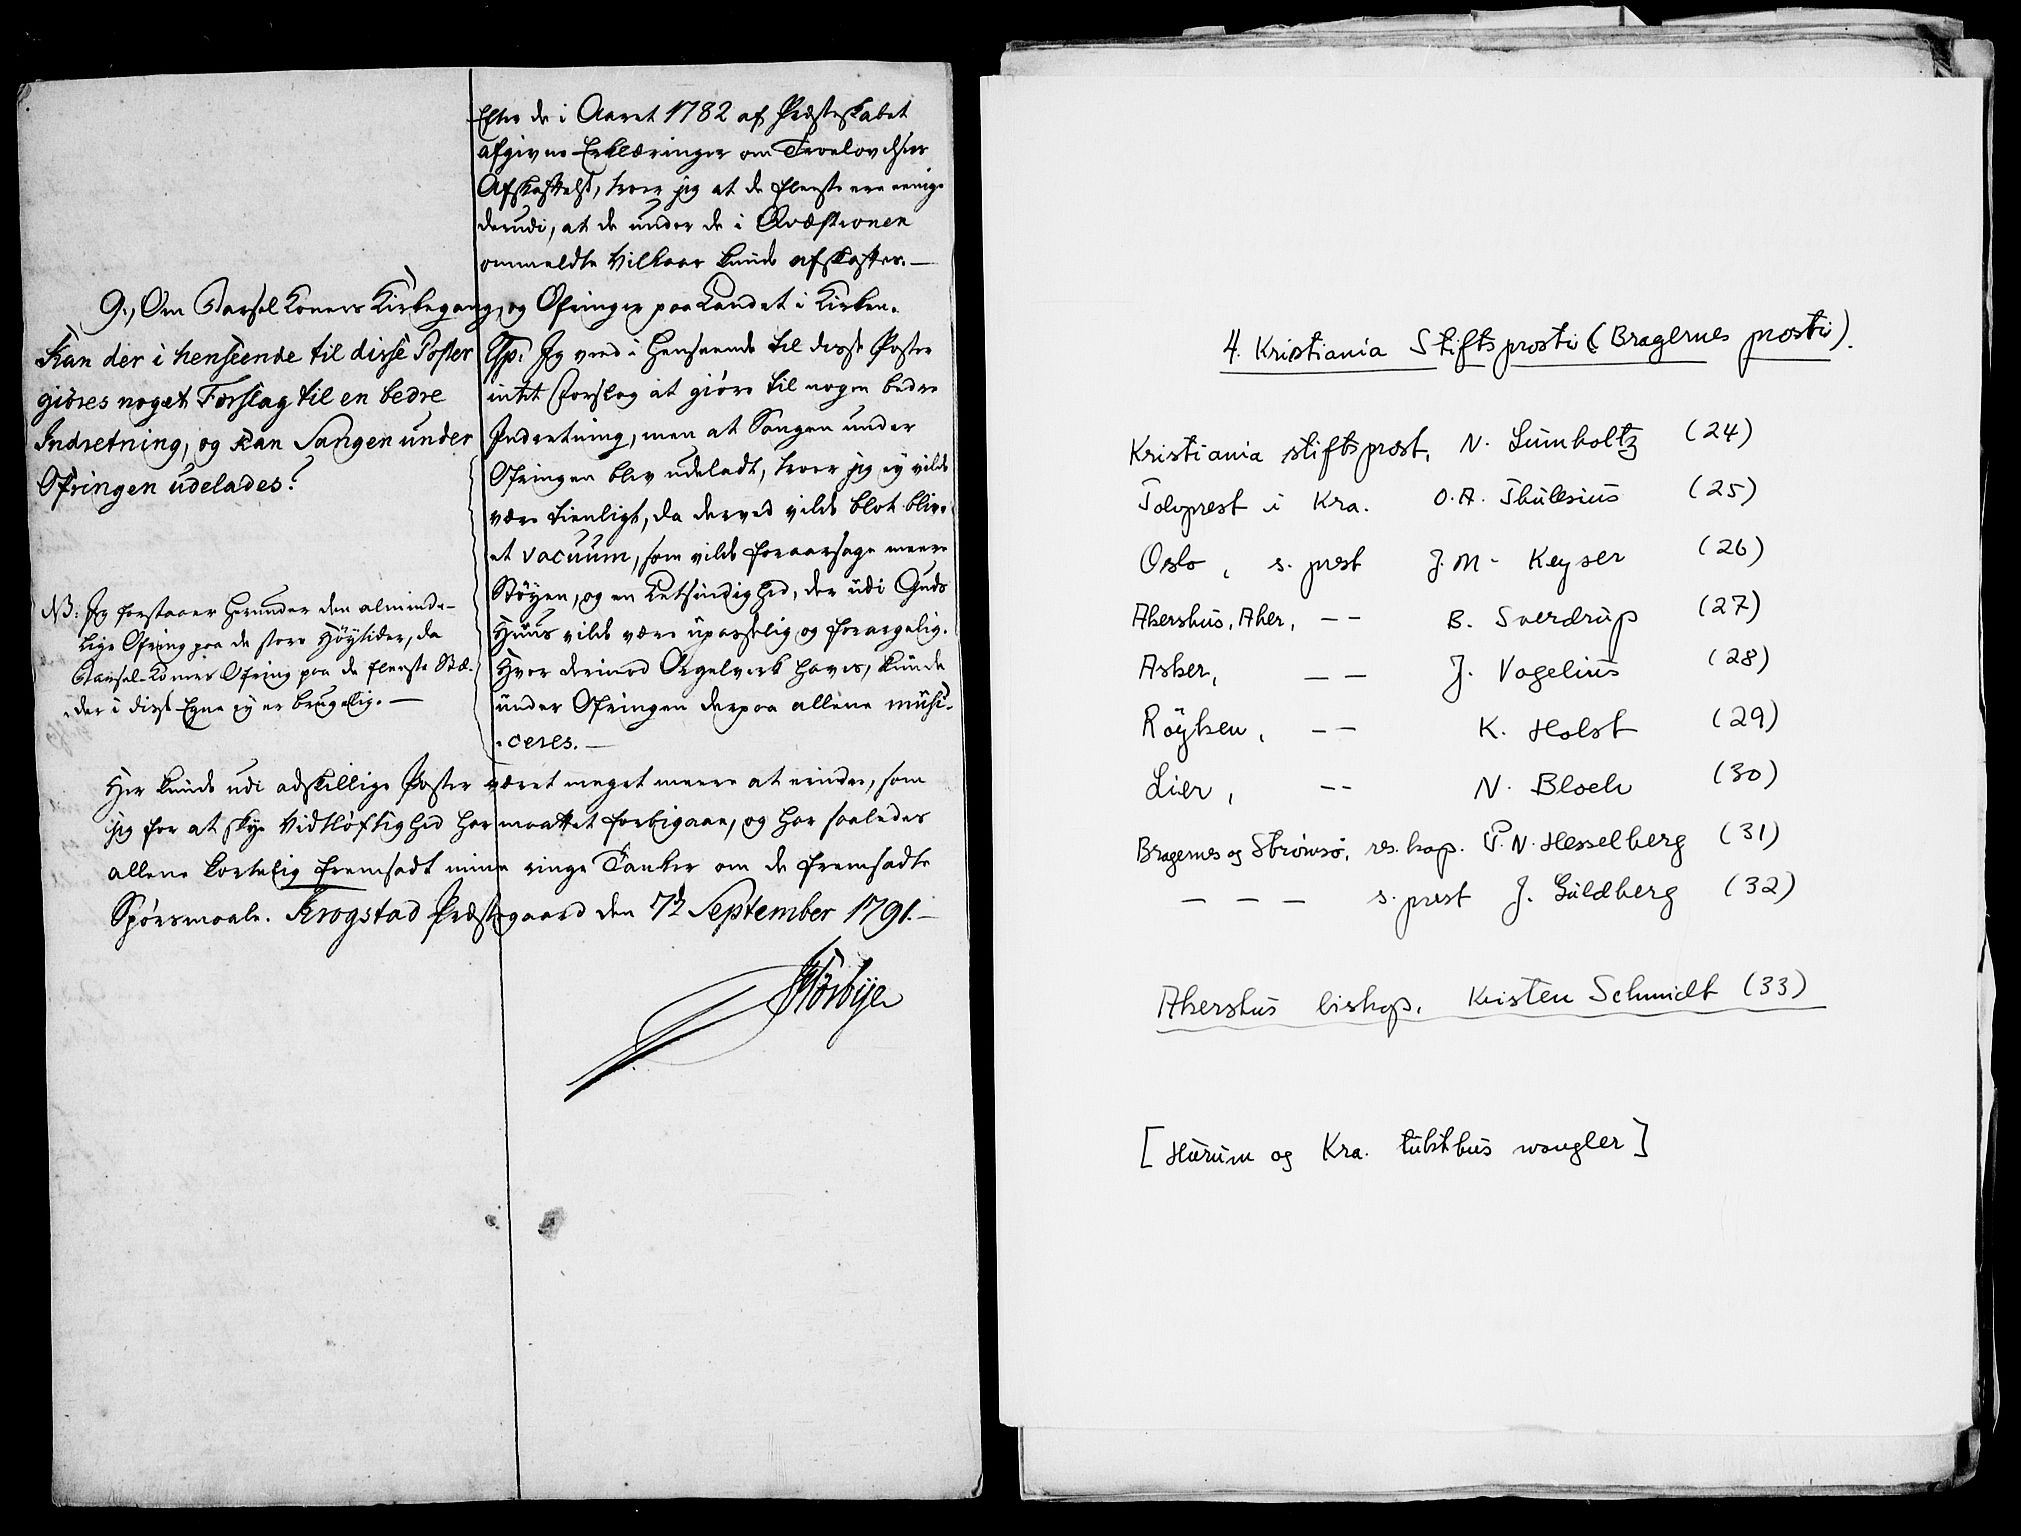 Efter de i Aaret 1782 af Præsteskabet
afgivne Erklæringer om Troelovelsers
Afskaffelse, troer jeg at de fleeste ere eenige
derudi, at de under de i Qvæstionen
ommeldte Vilkaar kunde afskaffes. —
9., Om Barsel Koners Kirkegang, og Ofringer paa Landet i Kirken.
Kan der i henseende til disse Poster
giöres noget Forslag til en bedre
Indretning, og kan Sangen under
Ofringen udelades?
Rsp. Jeg veed i Henseende til disse Poster
intet Forslag at giöre til nogen bedre
Indretning, men at Sangen under
Ofringen blev udeladt, troer jeg ey vilde
være tienligt, da derved vilde blot blive
et vacuum, som vilde foraarsage meere
Støyen, og en Letsindighed, der udi Guds
Huus vilde være upasselig og forargelig.
Hvor derimod Orgelverk haves, kunde
under Ofringen derpaa allene musi-
-ceres. —
NB: Jeg forstaaer herunder den alminde-
lige Ofring paa de store Høytider, da
Barsel-Koners Ofring paa de fleeste Stæ-
-der i disse Egne ey er brugelig. —
Her kunde udi adskillige Poster været meget meere at erindre, som
jeg for at skye Vidtløftighed har maattet forbigaae, og har saaledes
allene kortelig fremsadt mine ringe Tanker om de fremsadte
Spørsmaale. Krogstad Præstegaard den 7d September 1791. —
Störbye
4. Kristiania Stiftsprosti (Bragernes prosti).
Kristiania stiftsprost, N. Lumholtz (24)
Tolvprest i Kra. O.A. Thulesius (25)
Oslo, s. prest J.M. Keyser (26)
Akershus, Aker, — — B. Sverdrup (27)
Asker, — — J. Vogelius (28)
Röyken, — — K. Holst (29)
Lier, — — N. Bloch (30)
Bragernes og Strømsø, res. kap. P.N. Hesselberg (31)
— — — s. prest J. Guldberg (32)
Akershus biskop, Kristen Schmidt (33)
[Hurum og Kra. tukthus mangler]